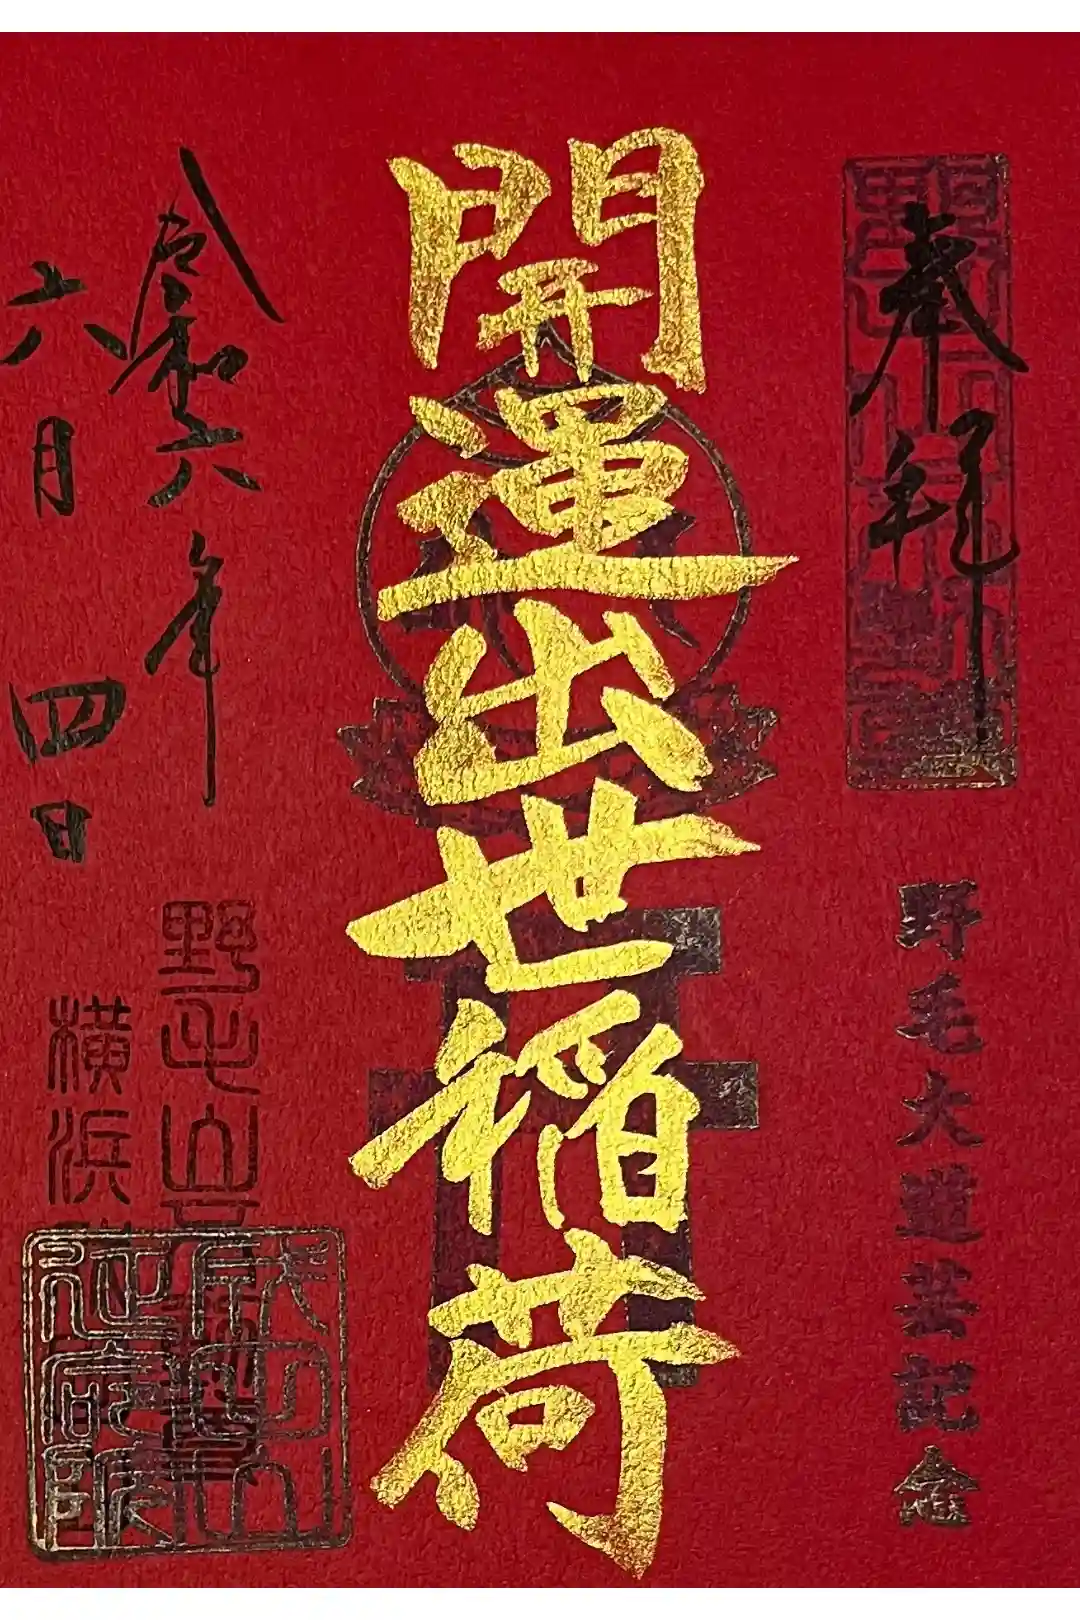 奉拝
野毛大道芸記念
開運出世稲荷
令和六年
六月四日
野毛山
横浜
成田山
延命院